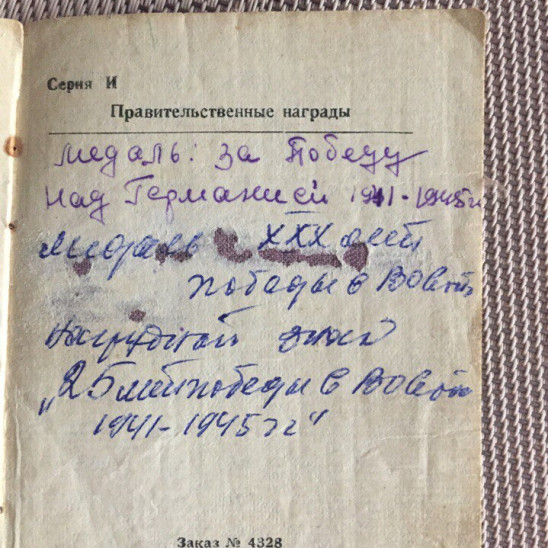 Серия И
Правительственные награды
медаль: за Победу
над Германией 1941-1945гг
медаль XXX лет
победы в ВОвойн
Нагрудной знак
„25 лет победы в ВОвойн
1941-1945гг"
Заказ № 4328